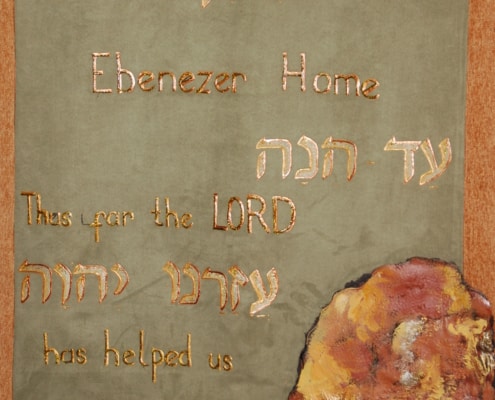 Ebenezer Home
עד הנה
Thus far the LORD
עזרנו יהוה
has helped us